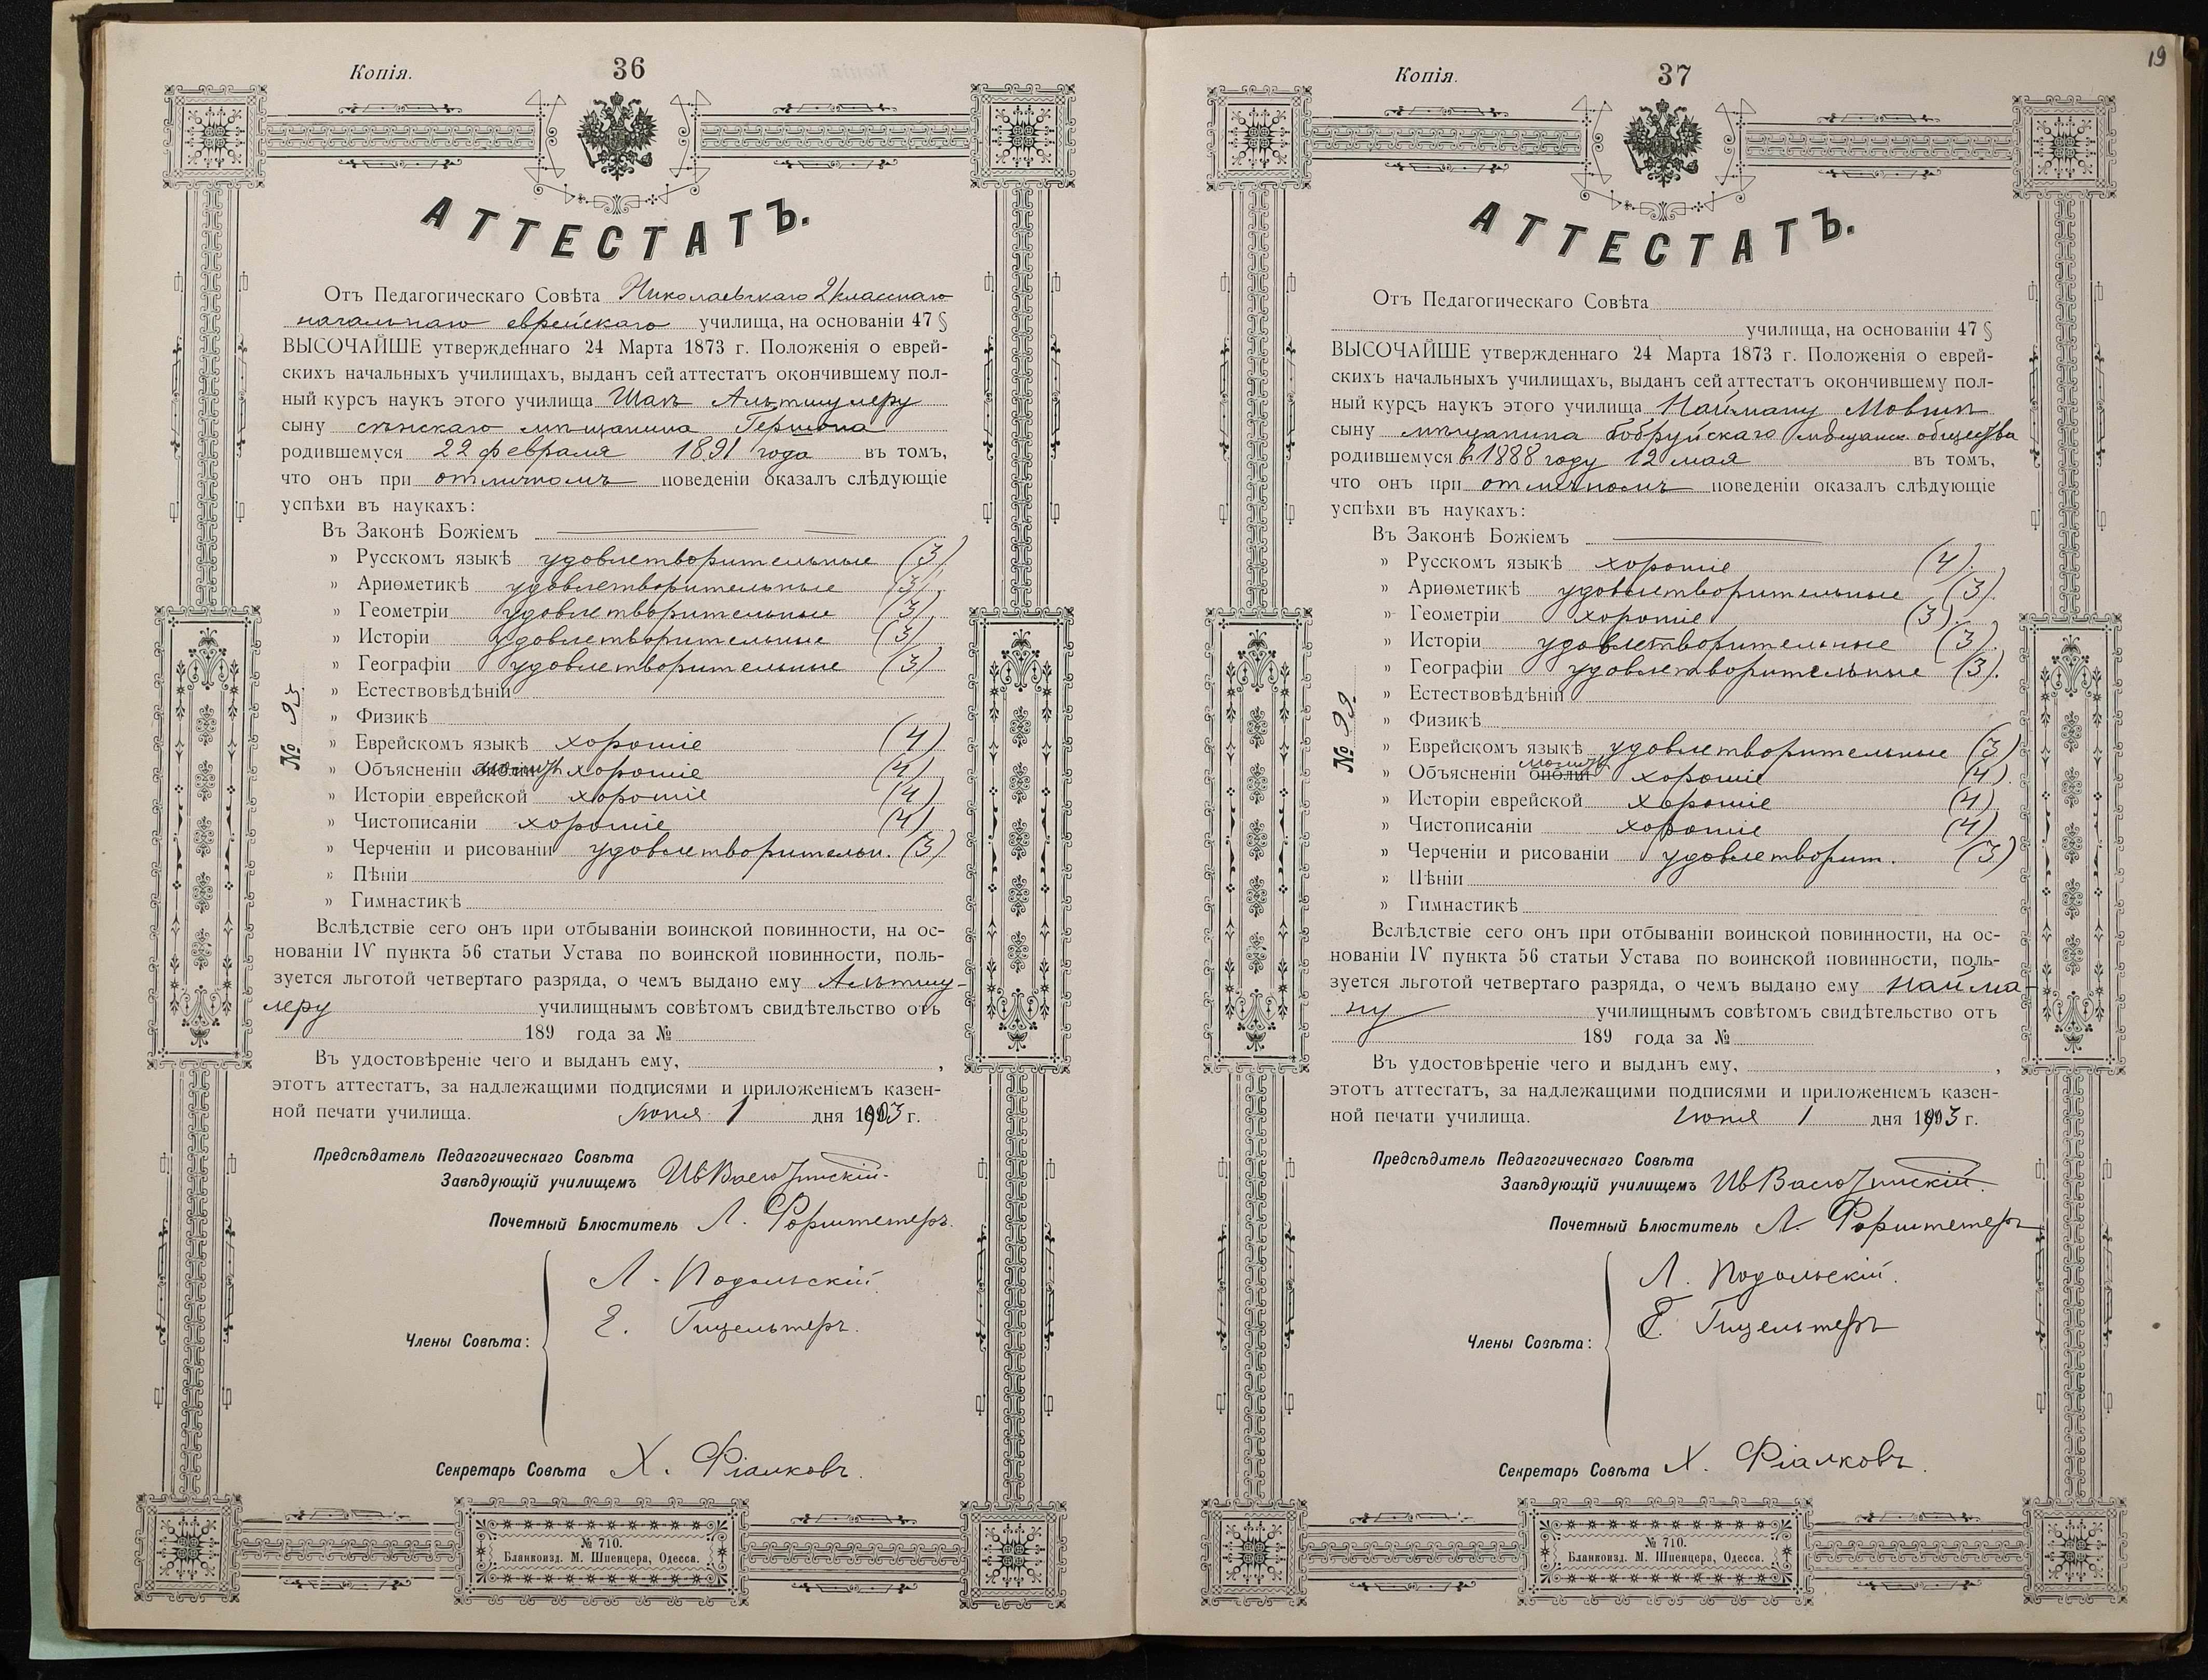 Копія.
36
АТТЕСТАТЪ.
Отъ Педагогическаго Совѣта Николаевскаго 2 класснаго
начальнаго еврейскаго училища, на основаніи 47 §
ВЫСОЧАЙШЕ утвержденнаго 24 Марта 1873 г. Положенія о еврей-
скихъ начальныхъ училищахъ, выданъ сей аттестатъ окончившему пол-
ный курсъ наукъ этого училища Альтшулеру
сыну мѣщанина Гершона
родившемуся 22 февраля 1891 года въ томъ,
что онъ при отличномъ поведеніи оказалъ слѣдующіе
успѣхи въ наукахъ:
Въ Законѣ Божіемъ
» Русскомъ языкѣ удовлетворительные (3)
» Ариѳметикѣ удовлетворительные (3)
» Геометріи удовлетворительные (3)
» Исторіи удовлетворительные (3)
» Географіи удовлетворительные (3)
» Естествовѣдѣніи
» Физикѣ
» Еврейскомъ языкѣ хорошіе (4)
» Объясненіи молитвъ хорошіе (4)
» Исторіи еврейской хорошіе (4)
» Чистописаніи хорошіе (4)
» Черченіи и рисованіи удовлетворительн. (3)
» Пѣніи
» Гимнастикѣ
№ 93
Вслѣдствіе сего онъ при отбываніи воинской повинности, на ос-
нованіи IV пункта 56 статьи Устава по воинской повинности, поль-
зуется льготой четвертаго разряда, о чемъ выдано ему Альтшу-
леру училищнымъ совѣтомъ свидѣтельство отъ
189 года за №
Въ удостовѣреніе чего и выданъ ему, ,
этотъ аттестатъ, за надлежащими подписями и приложеніемъ казен-
ной печати училища. Іюня 1 дня 1903 г.
Предсѣдатель Педагогическаго Совѣта
Завѣдующій училищемъ Ив Васютинскій
Почетный Блюститель Л. Форштетеръ.
Л. Подольскій.
Е. Гицельтеръ.
Члены Совѣта:
Секретарь Совѣта Х. Фіалковъ.
№ 710.
Бланкоизд. М. Шпенцера, Одесса.
Копія.
37
19
АТТЕСТАТЪ.
Отъ Педагогическаго Совѣта
училища, на основаніи 47 §
ВЫСОЧАЙШЕ утвержденнаго 24 Марта 1873 г. Положенія о еврей-
скихъ начальныхъ училищахъ, выданъ сей аттестатъ окончившему пол-
ный курсъ наукъ этого училища Найману Мовши
сыну мѣщанина Бобруйскаго мѣщанск. общества
родившемуся в 1888 году 12 мая въ томъ,
что онъ при отличномъ поведеніи оказалъ слѣдующіе
успѣхи въ наукахъ:
Въ Законѣ Божіемъ
» Русскомъ языкѣ хорошіе (4).
» Ариѳметикѣ удовлетворительные (3).
» Геометріи хорошіе (3).
» Исторіи удовлетворительные (3).
» Географіи удовлетворительные (3).
» Естествовѣдѣніи
» Физикѣ
» Еврейскомъ языкѣ удовлетворительные (3)
» Объясненіи библіи молитвъ хорошіе (4)
» Исторіи еврейской хорошіе (4)
» Чистописаніи хорошіе (4)
» Черченіи и рисованіи удовлетворит. (3)
» Пѣніи
» Гимнастикѣ
№ 99.
Вслѣдствіе сего онъ при отбываніи воинской повинности, на ос-
нованіи IV пункта 56 статьи Устава по воинской повинности, поль-
зуется льготой четвертаго разряда, о чемъ выдано ему Найма-
ну училищнымъ совѣтомъ свидѣтельство отъ
189 года за №
Въ удостовѣреніе чего и выданъ ему, ,
этотъ аттестатъ, за надлежащими подписями и приложеніемъ казен-
ной печати училища. Іюня 1 дня 1903 г.
Предсѣдатель Педагогическаго Совѣта
Завѣдующій училищемъ Ив Васютинскій.
Почетный Блюститель Л. Форштетеръ
Л. Подольскій.
Е. Гицельтеръ
Члены Совѣта:
Секретарь Совѣта Х. Фіалковъ.
№ 710.
Бланкоизд. М. Шпенцера, Одесса.